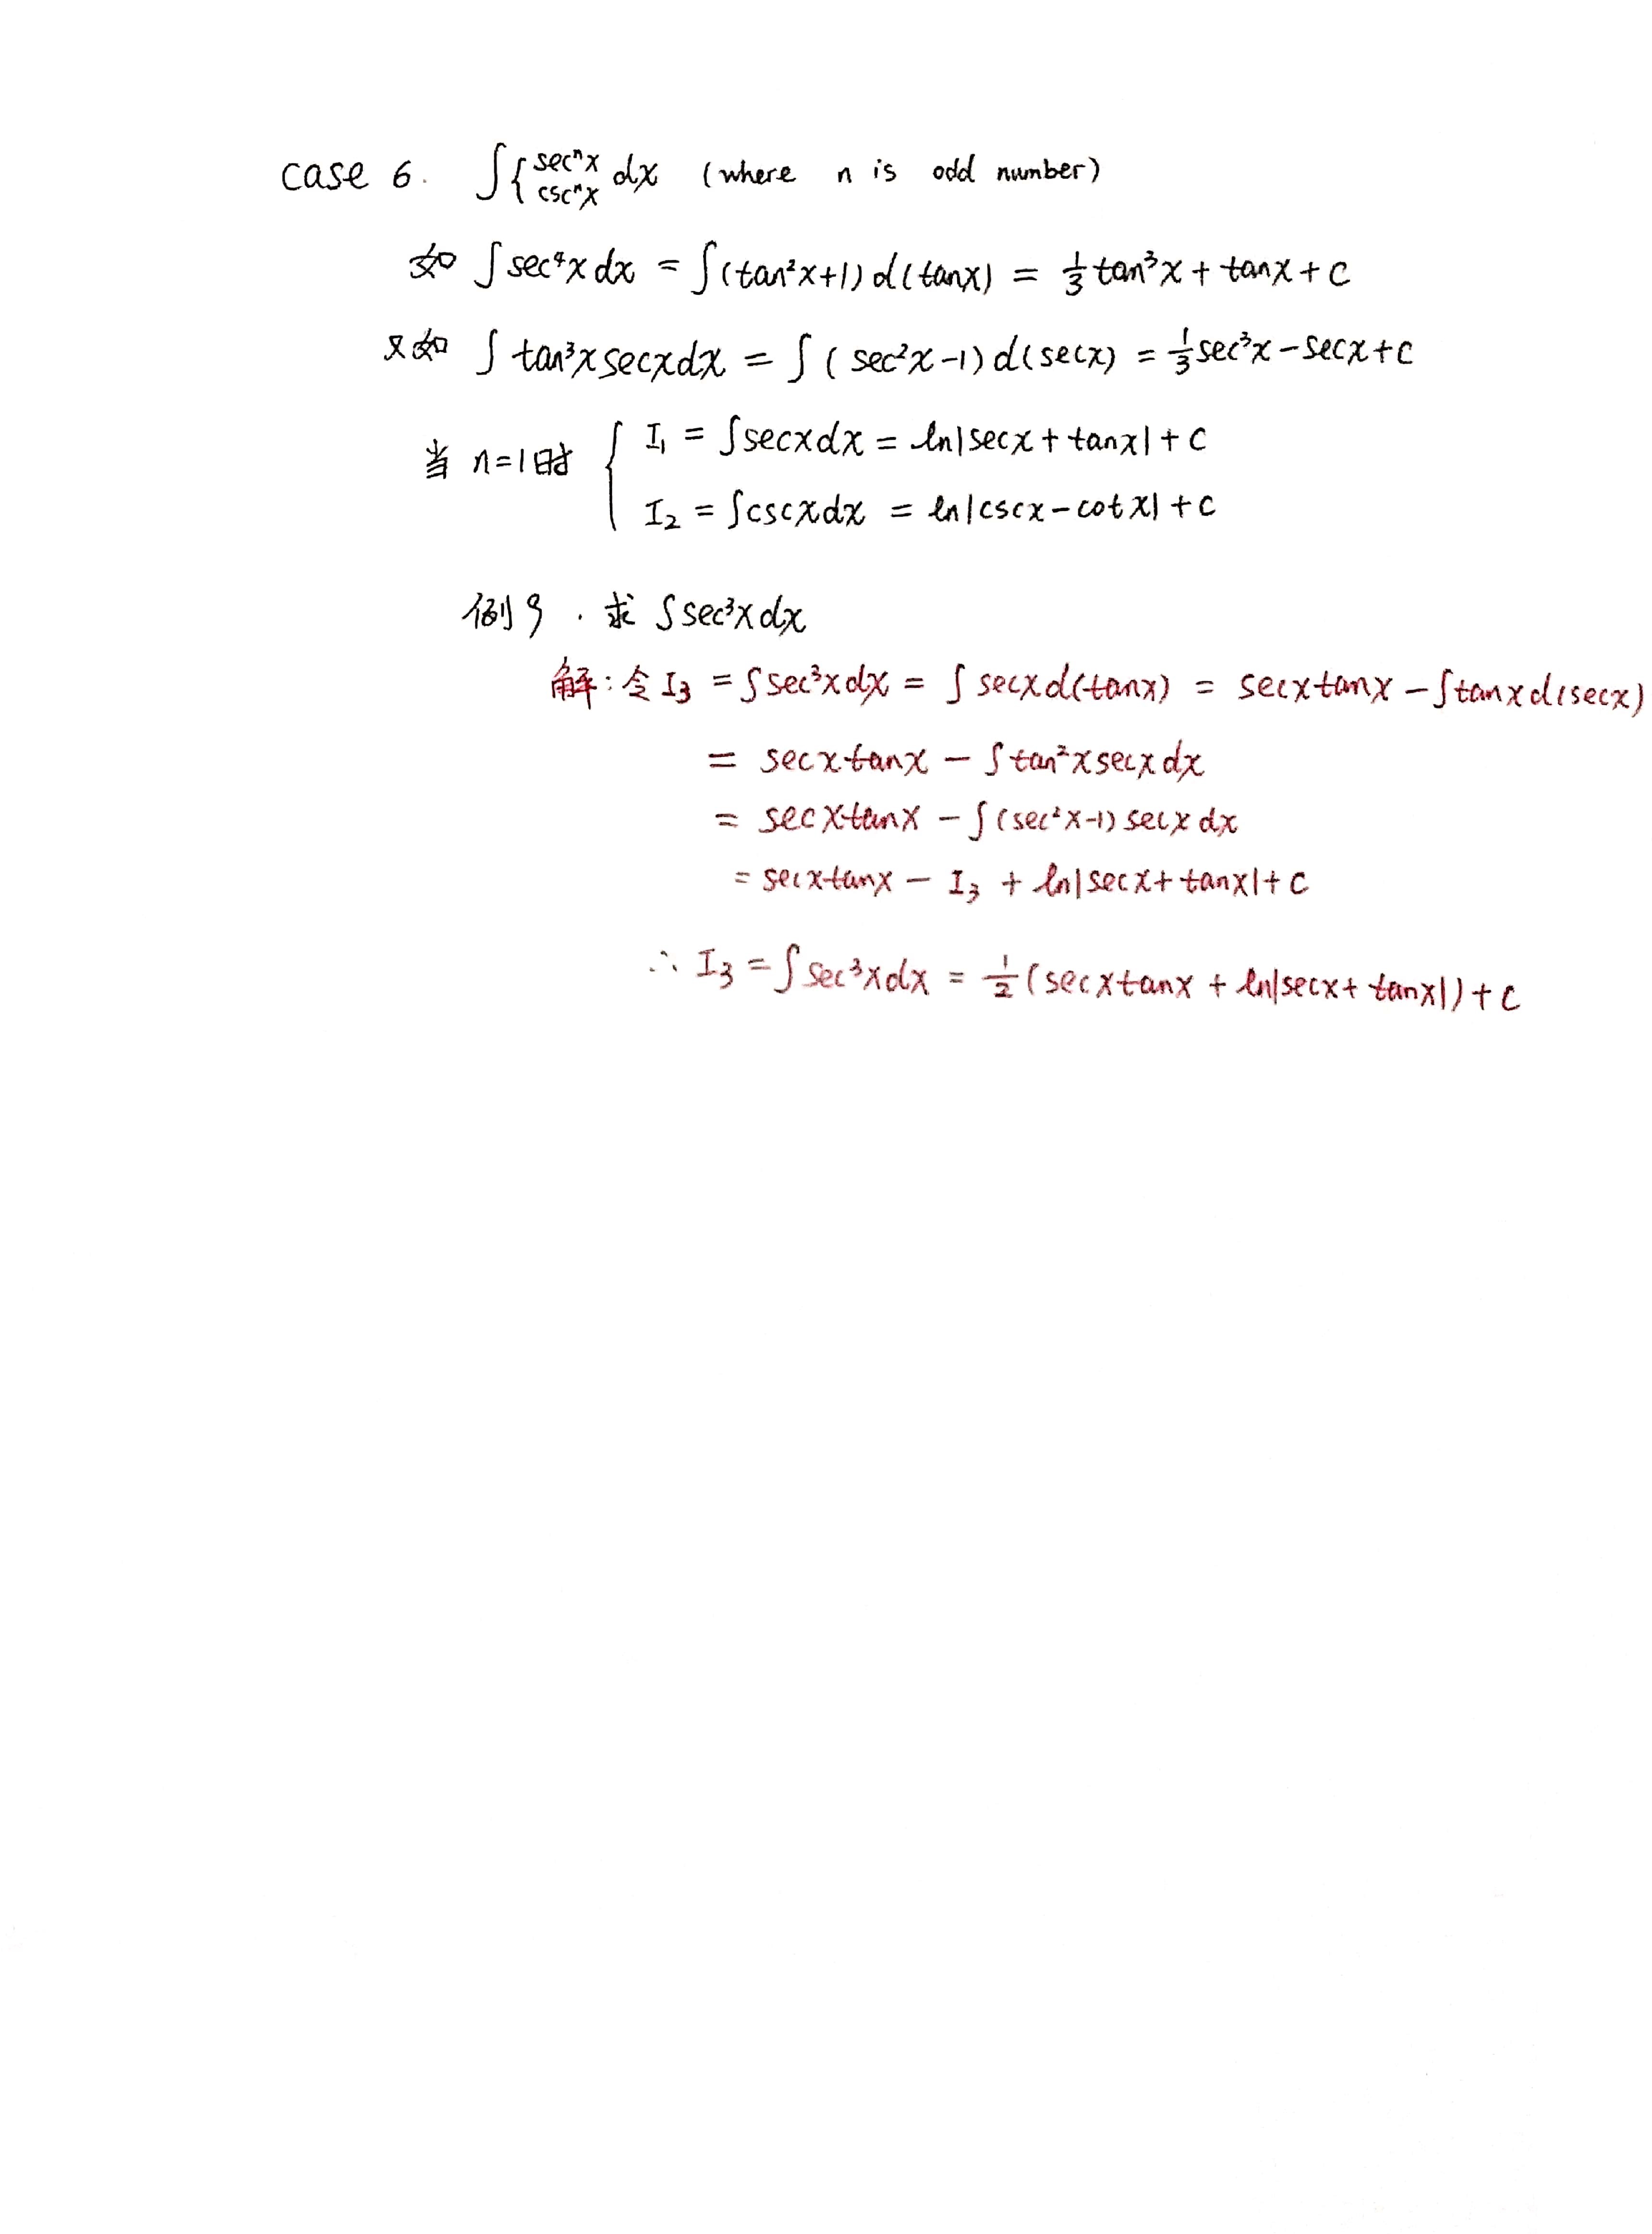 case 6. ∫{secⁿx cscⁿx dx (where n is odd number)
如 ∫sec⁴x dx = ∫(tan²x+1)d(tanx) = 1/3 tan³x + tanx + C
又如 ∫tan³x secx dx = ∫(sec²x-1)d(secx) = 1/3 sec³x - secx + C
当 n=1时 { I₁ = ∫secx dx = ln|secx + tanx| + C
I₂ = ∫cscx dx = ln|cscx - cotx| + C
例9. 求 ∫sec³x dx
解: 令 I₃ = ∫sec³x dx = ∫secx d(tanx) = secx tanx - ∫tanx d(secx)
= secx tanx - ∫tan²x secx dx
= secx tanx - ∫(sec²x-1) secx dx
= secx tanx - I₃ + ln|secx + tanx| + C
∴ I₃ = ∫sec³x dx = 1/2 (secx tanx + ln|secx + tanx|) + C